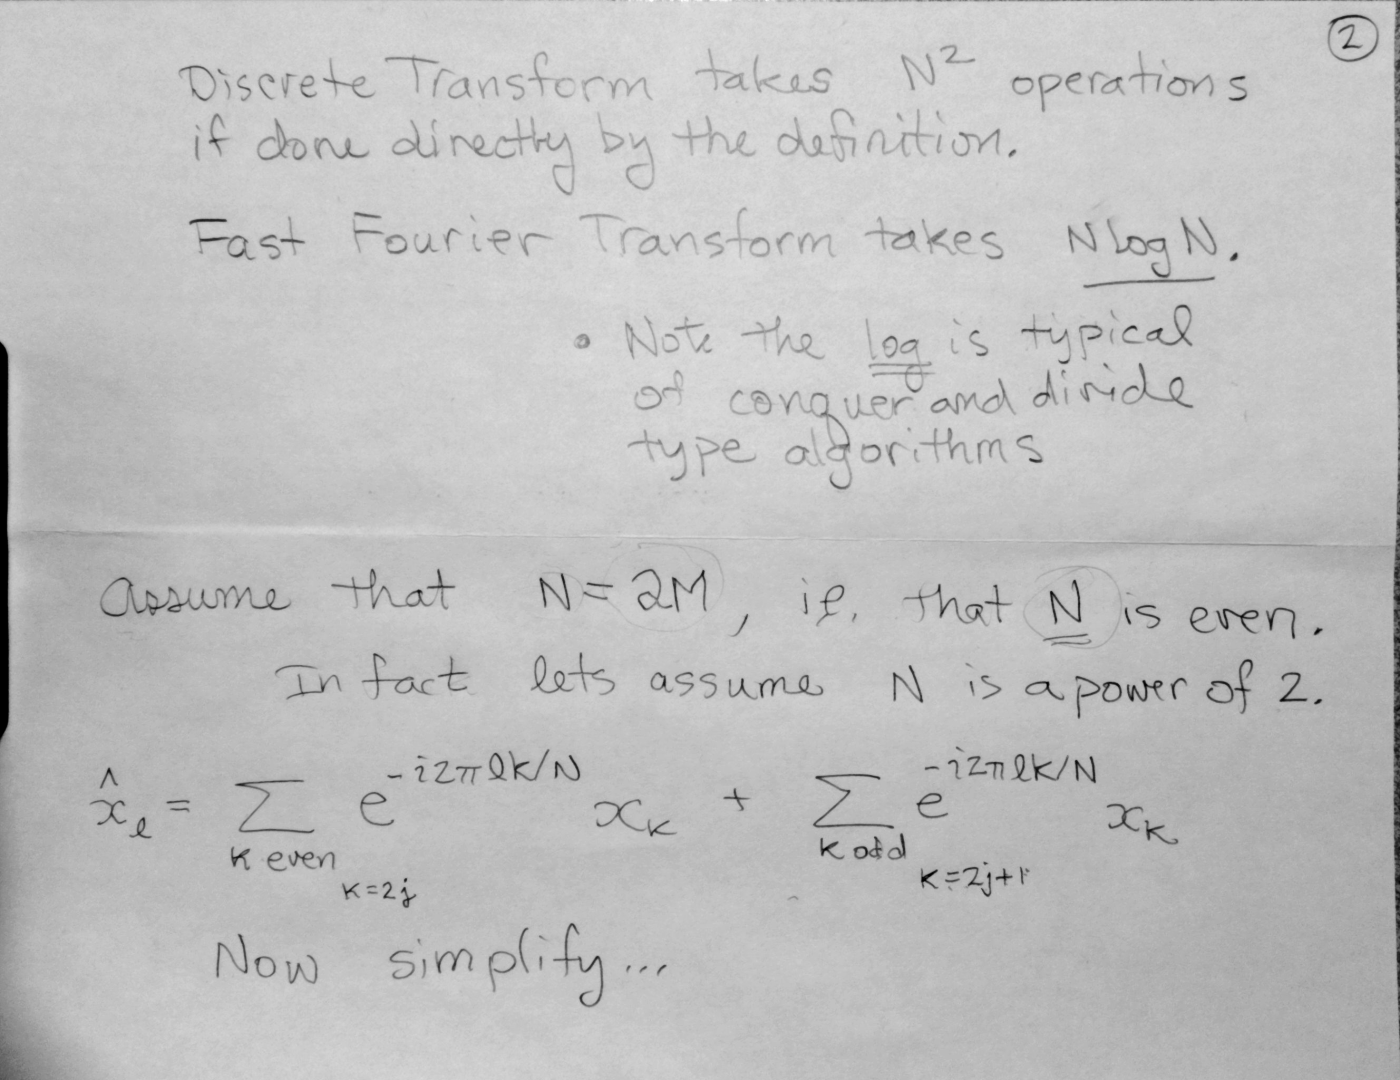 ②
Discrete Transform takes N² operations
if done directly by the definition.
Fast Fourier Transform takes N log N.
• Note the log is typical
of conquer and divide
type algorithms
Assume that N = 2M, ie. that N is even.
In fact lets assume N is a power of 2.
x̂_ℓ = ∑_{k even, k=2j} e^{-i2πℓk/N} x_k + ∑_{k odd, k=2j+1} e^{-i2πℓk/N} x_k
Now simplify...